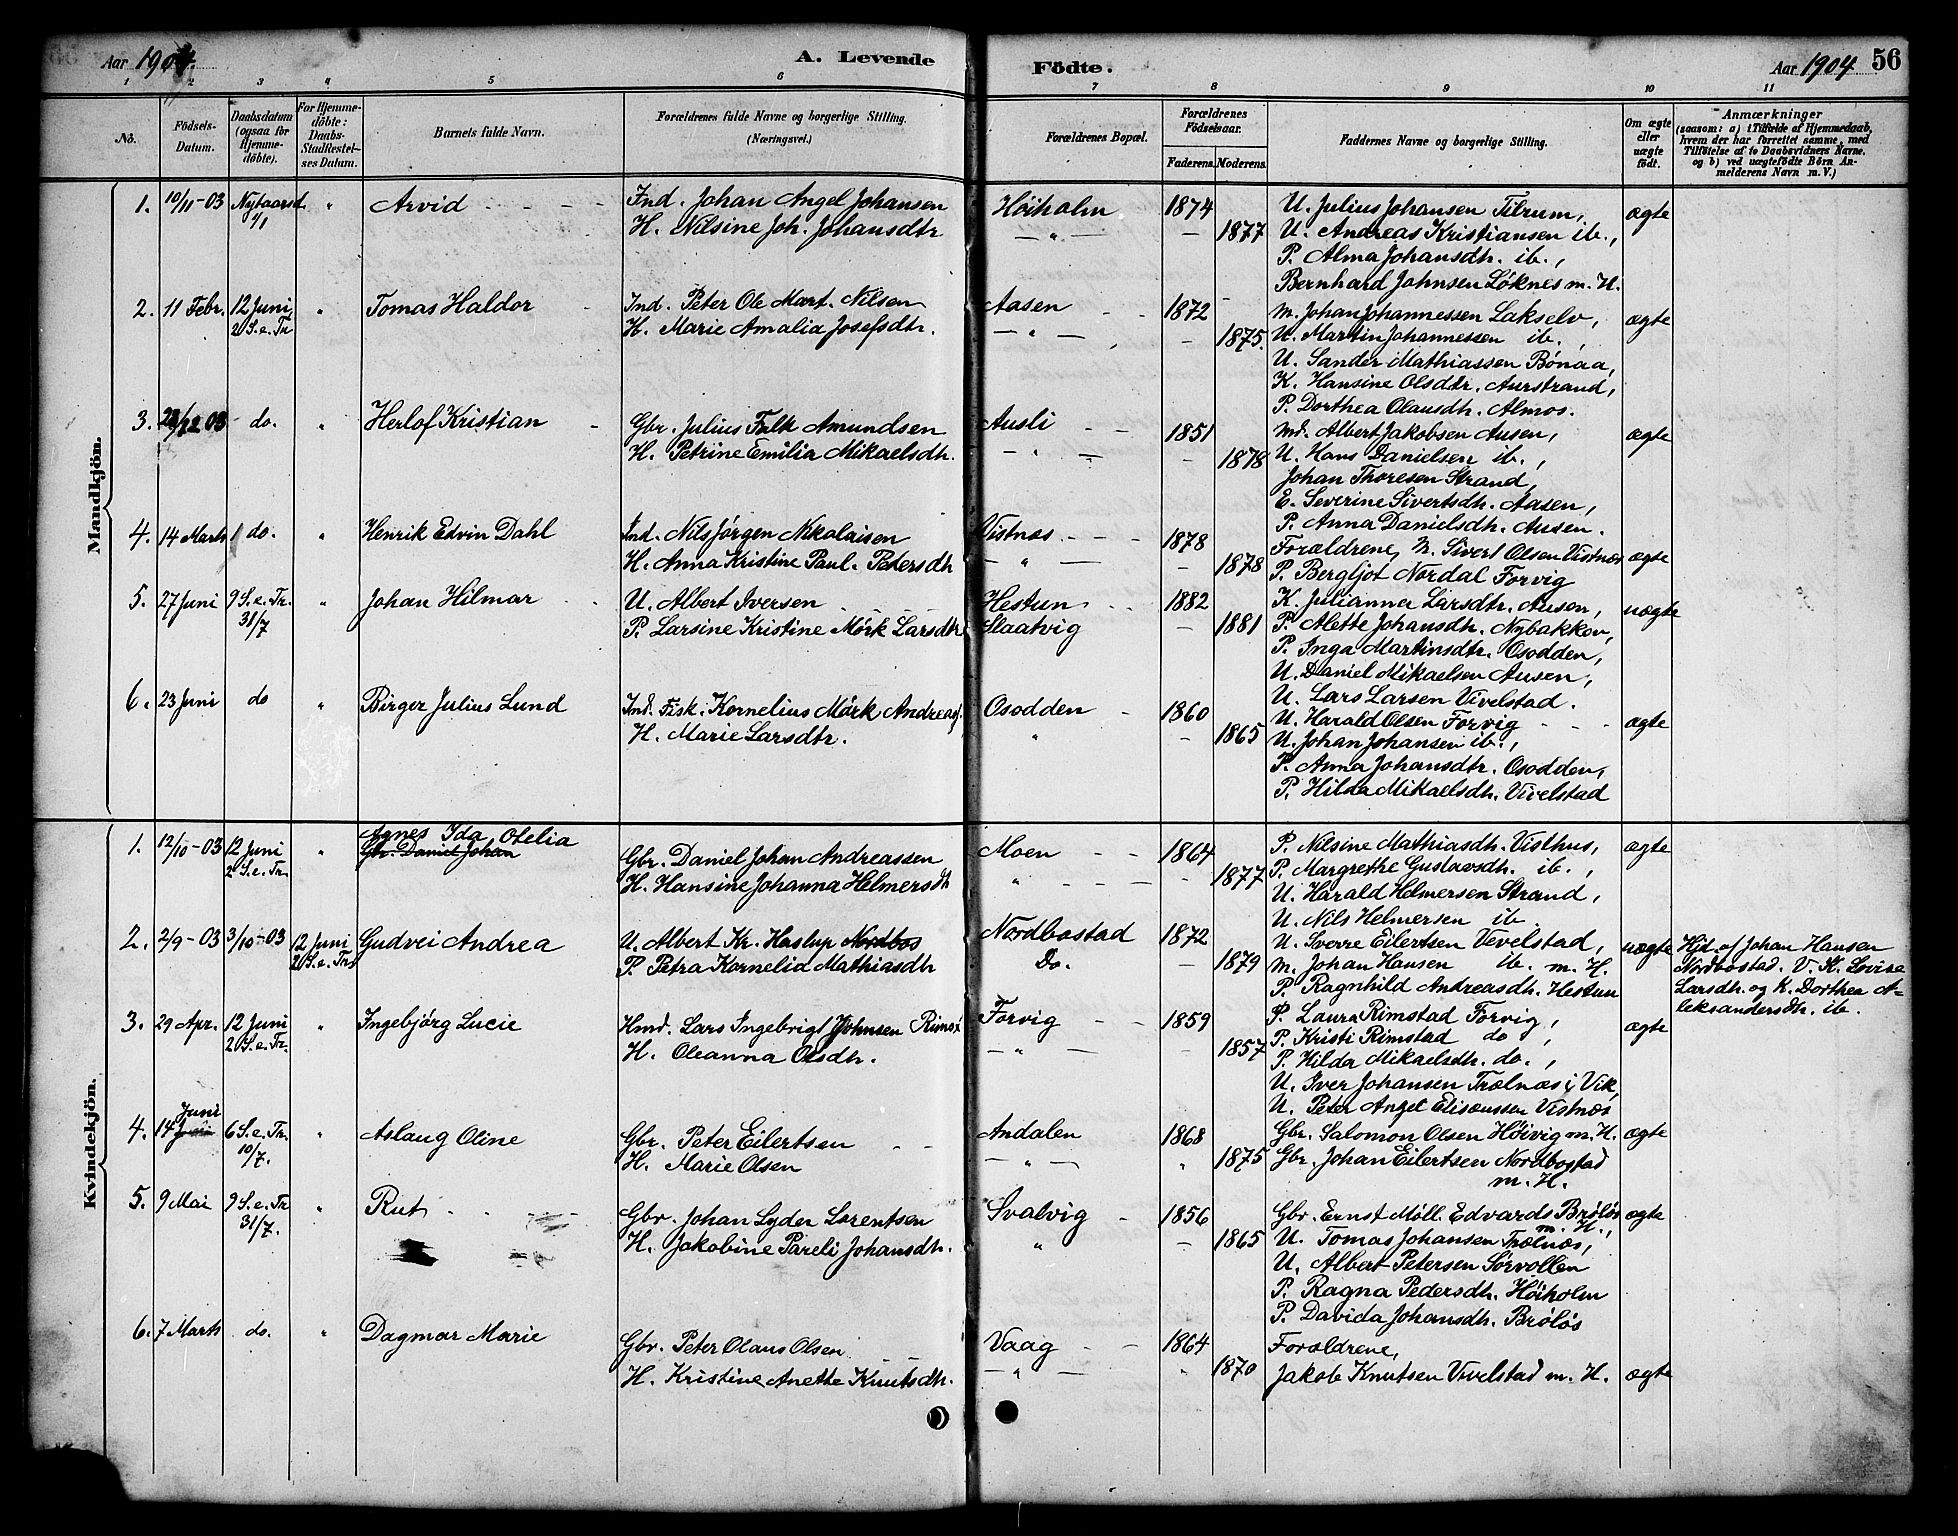 Aar 1904.
A. Levende
Födte.
Aar 1904
56
1 2 3 4 5 6 7 8 9 10 11
No.
Födsels-Datum.
Daabsdatum (ogsaa for Hjemmedöbte).
For Hjemmedöbte: Daabs-Stadfæstelses Datum.
Barnets fulde Navn.
Forældrenes fulde Navne og borgerlige Stilling. (Næringsvei.)
Forældrenes Bopæl.
Forældrenes Födselsaar.
Faderens. Moderens.
Faddernes Navne og borgerlige Stilling.
Om ægte eller uægte födt.
Anmærkninger
(saasom: a) i Tilfælde af Hjemmedaab, hvem der har forrettet samme, med Tilföielse af to Daabsvidners Navne, og b) ved uægtefödte Börn Anmelderens Navn m. V.)
Mandkjön.
1. 10/11-03 Nytaarsd. 1/1 " Arvid
Ind. Johan Angel Johansen
H. Nilsine Joh. Johansdtr
Höiholm 1874
— " — — 1877
U. Julius Johansen Tilrum,
U. Andreas Kristiansen ib.,
P. Alma Johansdtr. ib.,
Bernhard Johnsen Løknes m. H.
ægte
2. 11 Febr. 12 Juni 2 S. e. Tr " Tomas Haldor
Ind. Peter Ole Mart. Nilsen
H. Marie Amalia Josefsdtr.
Aasen 1872
— " — — 1875.
M. Johan Johannessen Lakselv,
U. Martin Johannessen ib.,
U. Sander Mathiassen Bönaa,
K. Hansine Olsdtr. Aurstrand,
P. Dorthea Olausdtr. Almos.
ægte
3. /12 03 do. " Herlof Kristian
Gbr. Julius Falk Amundsen
H. Petrine Emilia Mikaelsdtr.
Ausli 1851
— " — — 1878
Md. Albert Jakobsen Ausen,
U. Hans Danielsen ib.,
Johan Thoresen Strand,
E. Severine Sivertsdtr. Aasen,
P. Anna Danielsdtr. Ausen.
ægte
4. 14 Marts do. " Henrik Edvin Dahl
Ind. Nils Jørgen Nikolaisen
H. Anna Kristine Paul. Petersdtr
Vistnæs 1878
— " — — 1878
Forældrene, M. Sivert Olsen Vistnæs
P. Bergljot Nordal Forvig
ægte
5. 27 Juni 9 S. e. Tr. 31/7 " Johan Hilmar
U. Albert Iversen
P. Larsine Kristine Mörk Larsdtr
Hestun 1882
Slaatvig — 1881
K. Julianna Larsdtr. Ausen,
P. Alette Johansdtr. Nybakken,
P. Inga Martinsdtr. Osodden,
U. Daniel Mikaelsen Ausen,
U. Lars Larsen Vivelstad.
uægte
6. 23 Juni do " Birger Julius Lund
Ind. Fisk. Kornelius Mörk Andreas
H. Marie Larsdtr.
Osodden 1860
" — 1865
U. Harald Olsen Forvig
U. Johan Johansen ib.,
P. Anna Johansdtr. Osodden,
P. Hilda Mikaelsdtr. Vivelstad
ægte
Kvindekjön.
1. 12/10-03 12 Juni 2 S. e. Tr. " Agnes Ida Otelia
Gbr. Daniel Johan
Gbr. Daniel Johan Andreassen
H. Hansine Johanna Helmersdtr
Moen 1864
" — 1877
P. Nilsine Mathiasdtr. Visthus,
P. Margrethe Gustavsdtr. ib.,
U. Harald Helmersen Strand,
U. Nils Helmersen ib
ægte
2. 2/9-03 3/10-03 12 Juni 2 S. e. Tr. Gudvei Andrea
U. Albert Kr. Hastup Nordbos
P. Petra Kornelia Mathiasdtr
Nordbostad 1872
Do. — 1879
U. Sverre Eilertsen Vevelstad,
M. Johan Hansen ib. m. H.
P. Ragnhild Andreasdtr. Hestun
uægte
Hjd. af Johan Hansen
Nordbostad. V. K. Lovise
Larsdtr. og K. Dorthea A-
leksandersdtr. ib.
3. 29 Apr. 12 Juni 2 S. e. Tr. " Ingebjörg Lucie
Hmd. Lars Ingebrigt Johnsen
H. Oleanna Olsdtr.
Forvig 1859
— " — 1857
P. Laura Rimstad Forvig,
P. Kristi Rimstad do,
P. Hilda Mikaelsdtr. do.,
U. Iver Johansen Trælnæs i Vik,
U. Peter Angel Elisæussen Vistnæs
ægte
4. 14 Juni 6 S. e. Tr. 10/7. " Aslaug Oline
Gbr. Peter Eilertsen
H. Marie Olsen
Andalen 1868
— " — " 1875
Gbr. Salomon Olsen Höivig m. H.
Gbr. Johan Eilertsen Nordbostad
m. H.
ægte
5. 9 Mai 9 S. e. Tr 31/7. " Rut
Gbr. Johan Lyder Lorentsen
H. Jakobine Pareli Johansdtr.
Svalvig 1856
" — 1865
Gbr. Ernst Möll. Edvards Bröløs
m. H.,
U. Tomas Johansen Trælnæs,
U. Albert Petersen Sörvollen
P. Ragna Pedersdtr. Höiholm
P. Davida Johansdtr. Bröløs
ægte
6. 7 Marts do. " Dagmar Marie
Gbr. Peter Olaus Olsen
H. Kristine Anette Knutsdtr.
Vaag 1864
— " — " 1870
Forældrene,
Jakob Knutsen Vevelstad m. H.
ægte